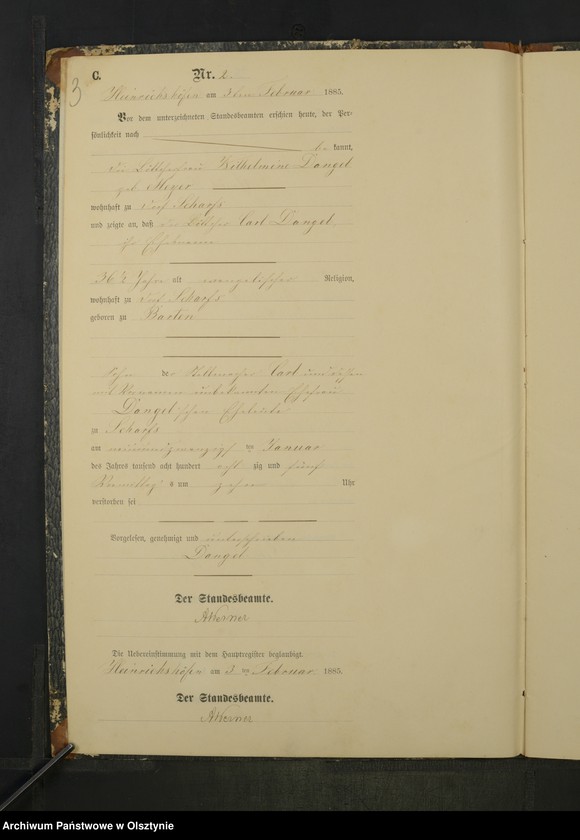 3
C. Nr. 2.
Heinrichshöfen am 3ten Februar 1885.
Vor dem unterzeichneten Standesbeamten erschien heute, der Per-
sönlichkeit nach
be kannt,
die Böttcherfrau Wilhelmine Dangel
geb. Meyer
wohnhaft zu Dorf Scharfs
und zeigte an, daß der Böttcher Carl Dangel,
ihr Ehemann
36½ Jahre alt evangelischer Religion,
wohnhaft zu Dorf Scharfs
geboren zu Barten
Sohn der Carl und dessen
mit Vornamen unbekannten Ehefrau
Dangel'schen Eheleute
zu Scharfs
am neunundzwanzigsten Januar
des Jahres tausend acht hundert acht zig und fünf
Vormittags um zehn Uhr
verstorben sei
Vorgelesen, genehmigt und unterschrieben
Dangel
Der Standesbeamte.
AWerner
Die Uebereinstimmung mit dem Hauptregister beglaubigt.
Heinrichshöfen am 3 ten Februar 1885.
Der Standesbeamte.
AWerner
Archiwum Państwowe w Olsztynie